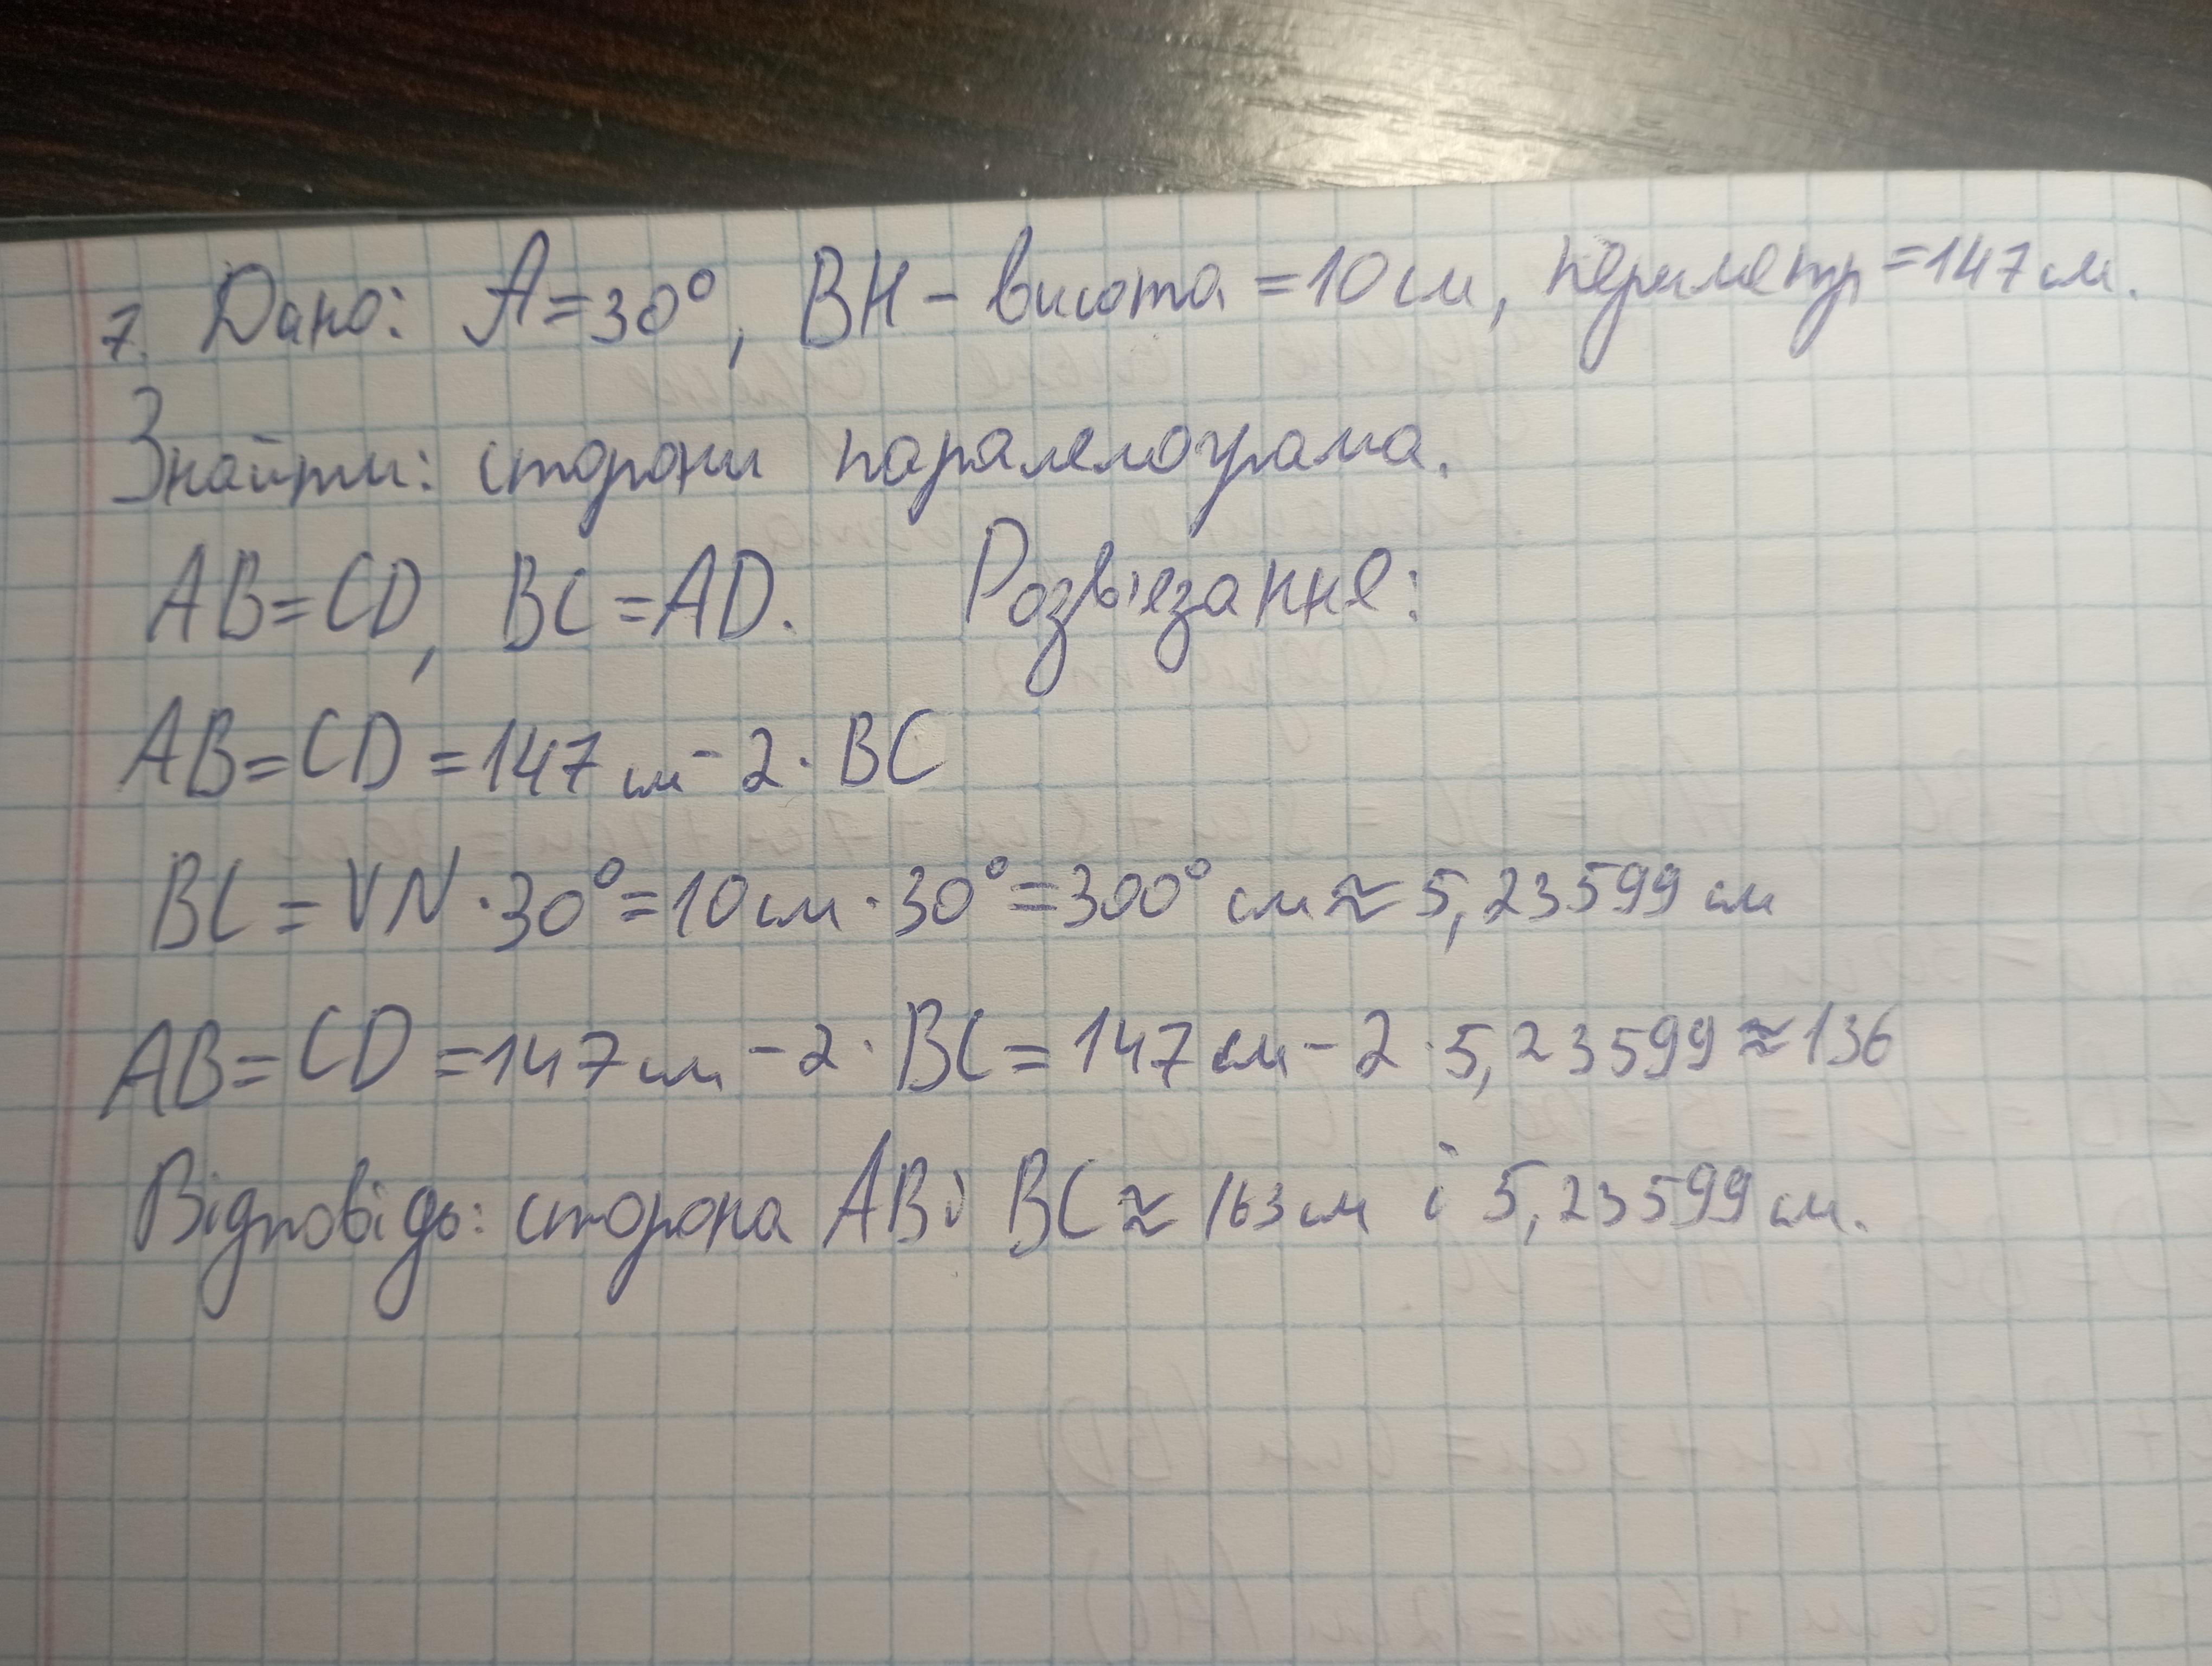 7. Дано: A=30°, BH - висота =10 см, периметр =147 см.
Знайти: сторони паралелограма.
AB=CD, BC=AD. Розв'язання:
AB=CD=147 см - 2·BC
BC=VN·30°=10 см·30°=300° см≈5,23599 см
AB=CD=147 см - 2·BC=147 см - 2·5,23599≈136
Відповідь: сторона AB і BC≈163 см і 5,23599 см.